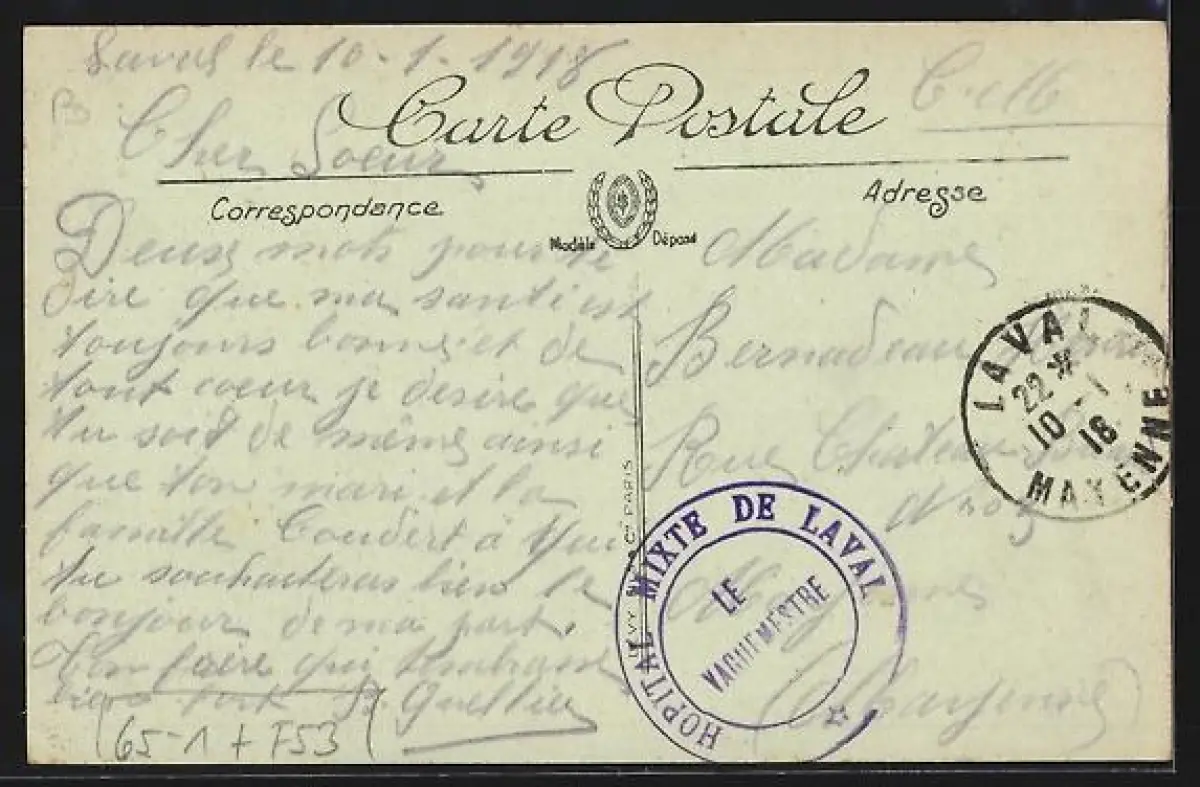 Laval le 10-1-1918
C. M
Carte Postale
Cher Soeur
Correspondance
Adresse
Modèle Déposé
Deux mots pour te
dire que ma santé est
toujours bonne et de
tout coeur je desire que
tu soit de même ainsi
que ton mari et la
famille Coudert à qui
tu souhaiteras bien le
bonjour de ma part.
Ton frère qui t'embrasse
bien fort
65-1 + F53
Madame
Bernadeau
Rue
No 5
Mayenne
(Mayenne)
LAVAL
22 *
10 - 1
18
MAYENNE
HOPITAL MIXTE DE LAVAL
LE
VAGUEMESTRE
LEVY
PARIS